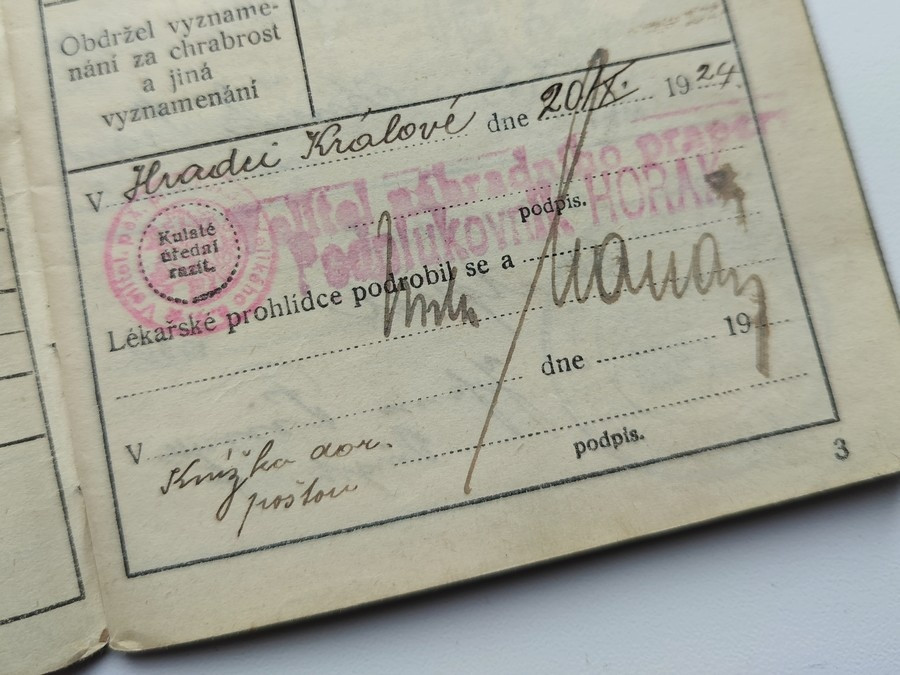 Obdržel vyzname-
nání za chrabrost
a jiná
vyznamenání
V Hradci Králové dne 20/X. 1924.
Velitel náhradního praporu
podpis.
Podplukovník HORÁK
Kulaté
úřední
razít.
Lékařské prohlídce podrobil se a
dne 19
V
podpis.
Knížka dor.
poštou
3